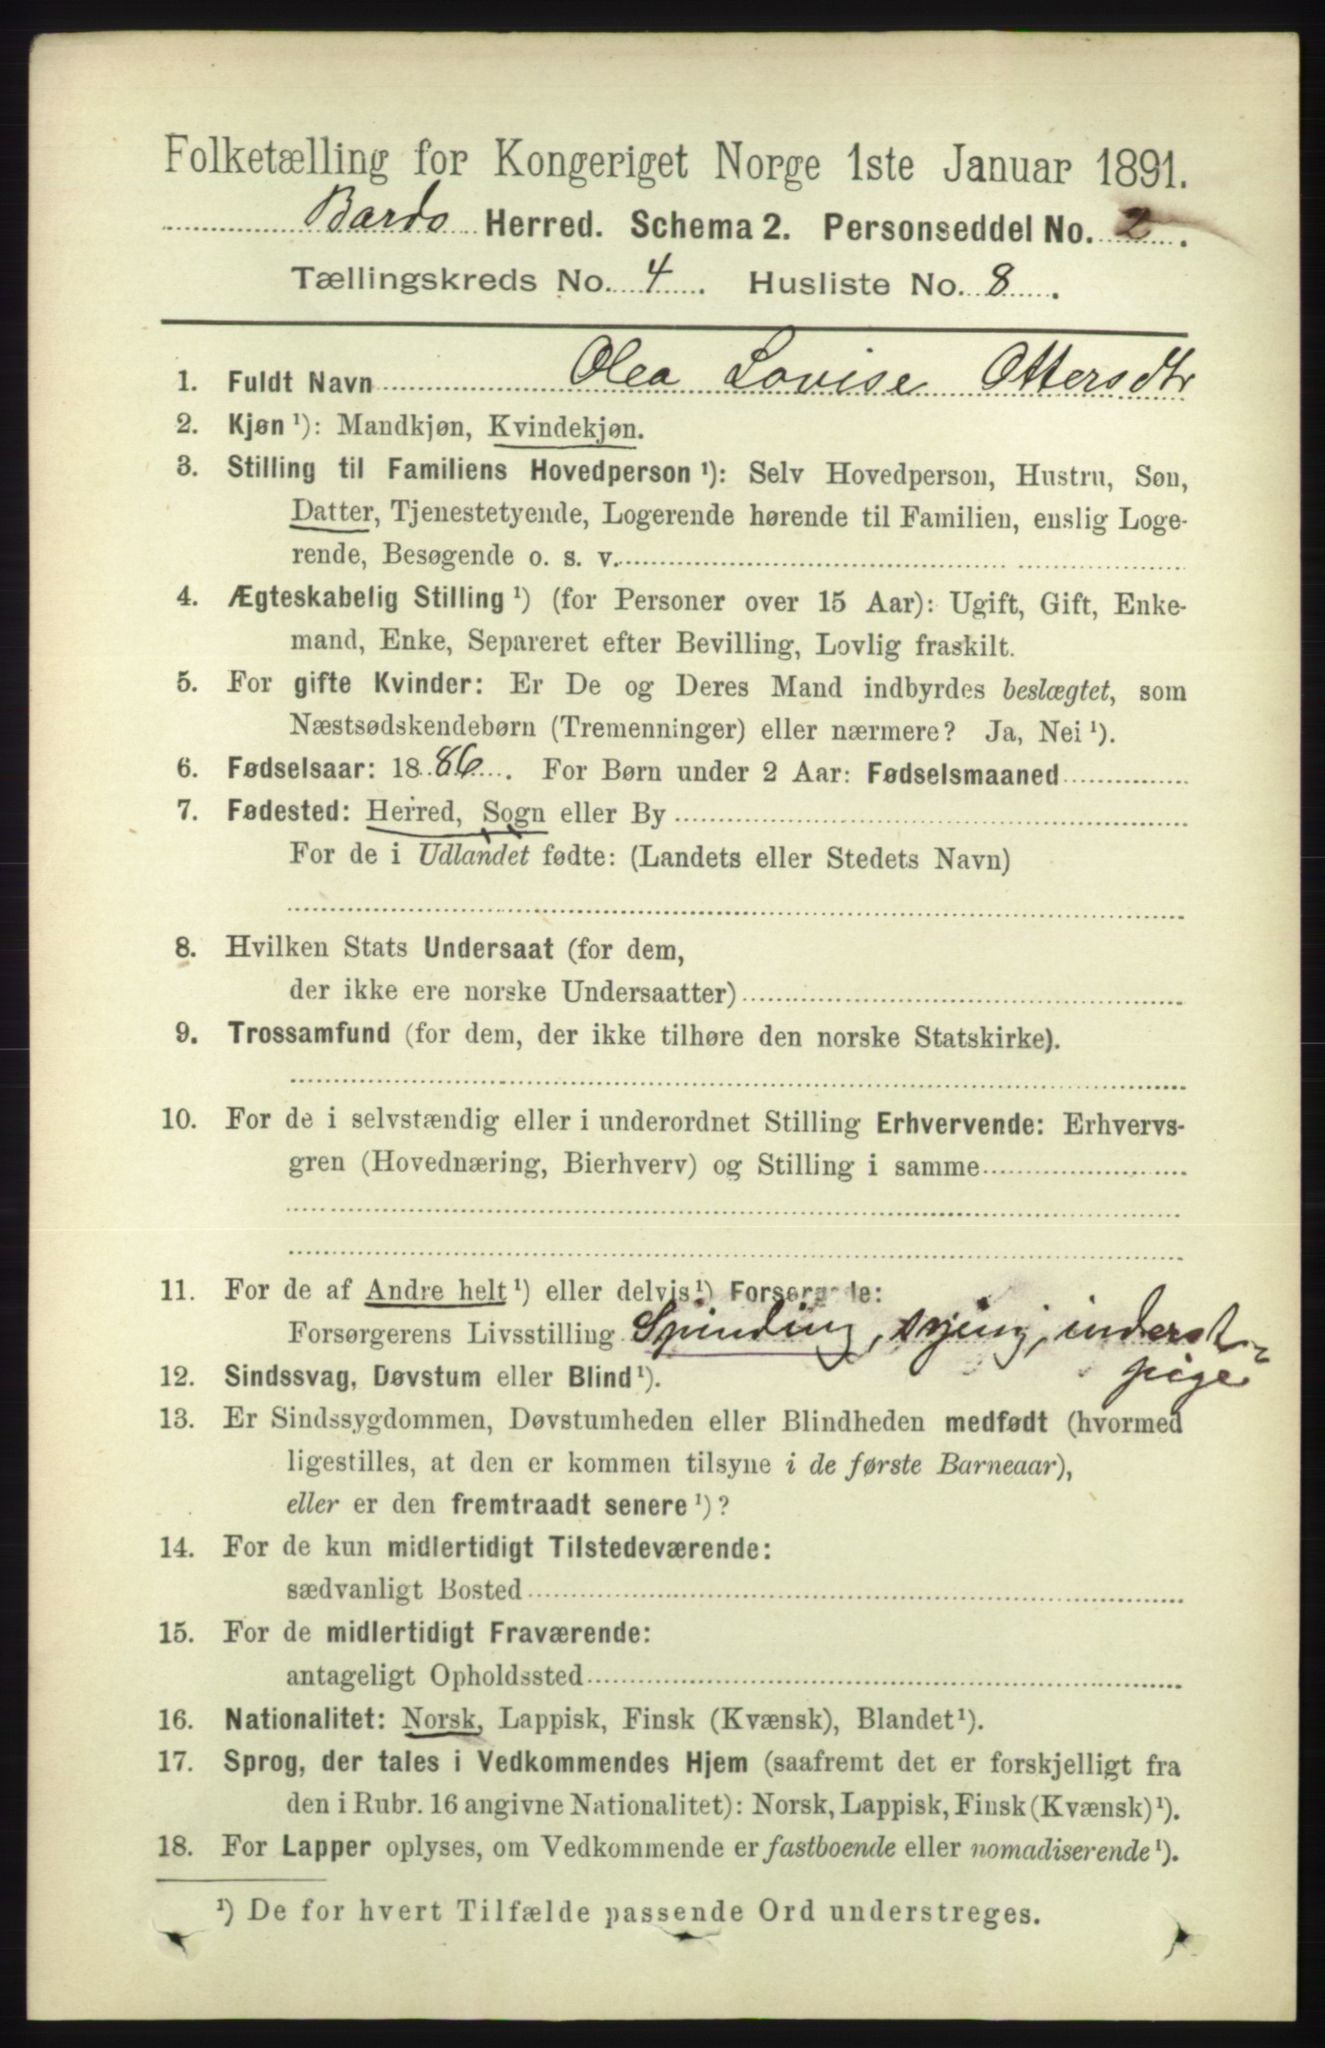 Folketælling for Kongeriget Norge 1ste Januar 1891.
Bardo Herred. Schema 2. Personseddel No. 2.
Tællingskreds No. 4. Husliste No. 8.
1. Fuldt Navn Olea Lovise Ottersdtr
2. Kjøn ¹): Mandkjøn, Kvindekjøn.
3. Stilling til Familiens Hovedperson ¹): Selv Hovedperson, Hustru, Søn,
Datter, Tjenestetyende, Logerende hørende til Familien, enslig Loge-
rende, Besøgende o. s. v.
4. Ægteskabelig Stilling ¹) (for Personer over 15 Aar): Ugift, Gift, Enke-
mand, Enke, Separeret efter Bevilling, Lovlig fraskilt.
5. For gifte Kvinder: Er De og Deres Mand indbyrdes beslægtet, som
Næstsødskendebørn (Tremenninger) eller nærmere? Ja, Nei ¹).
6. Fødselsaar: 1886. For Børn under 2 Aar: Fødselsmaaned
7. Fødested: Herred, Sogn eller By
For de i Udlandet fødte: (Landets eller Stedets Navn)
8. Hvilken Stats Undersaat (for dem,
der ikke ere norske Undersaatter)
9. Trossamfund (for dem, der ikke tilhøre den norske Statskirke).
10. For de i selvstændig eller i underordnet Stilling Erhvervende: Erhvervs-
gren (Hovednæring, Bierhverv) og Stilling i samme
11. For de af Andre helt ¹) eller delvis ¹) Forsørgede:
Forsørgerens Livsstilling Spinding, sying, inderst-
pige
12. Sindssvag, Døvstum eller Blind ¹).
13. Er Sindssygdommen, Døvstumheden eller Blindheden medfødt (hvormed
ligestilles, at den er kommen tilsyne i de første Barneaar),
eller er den fremtraadt senere ¹)?
14. For de kun midlertidigt Tilstedeværende:
sædvanligt Bosted
15. For de midlertidigt Fraværende:
antageligt Opholdssted
16. Nationalitet: Norsk, Lappisk, Finsk (Kvænsk), Blandet ¹).
17. Sprog, der tales i Vedkommendes Hjem (saafremt det er forskjelligt fra
den i Rubr. 16 angivne Nationalitet): Norsk, Lappisk, Finsk (Kvænsk) ¹).
18. For Lapper oplyses, om Vedkommende er fastboende eller nomadiserende ¹).
¹) De for hvert Tilfælde passende Ord understreges.